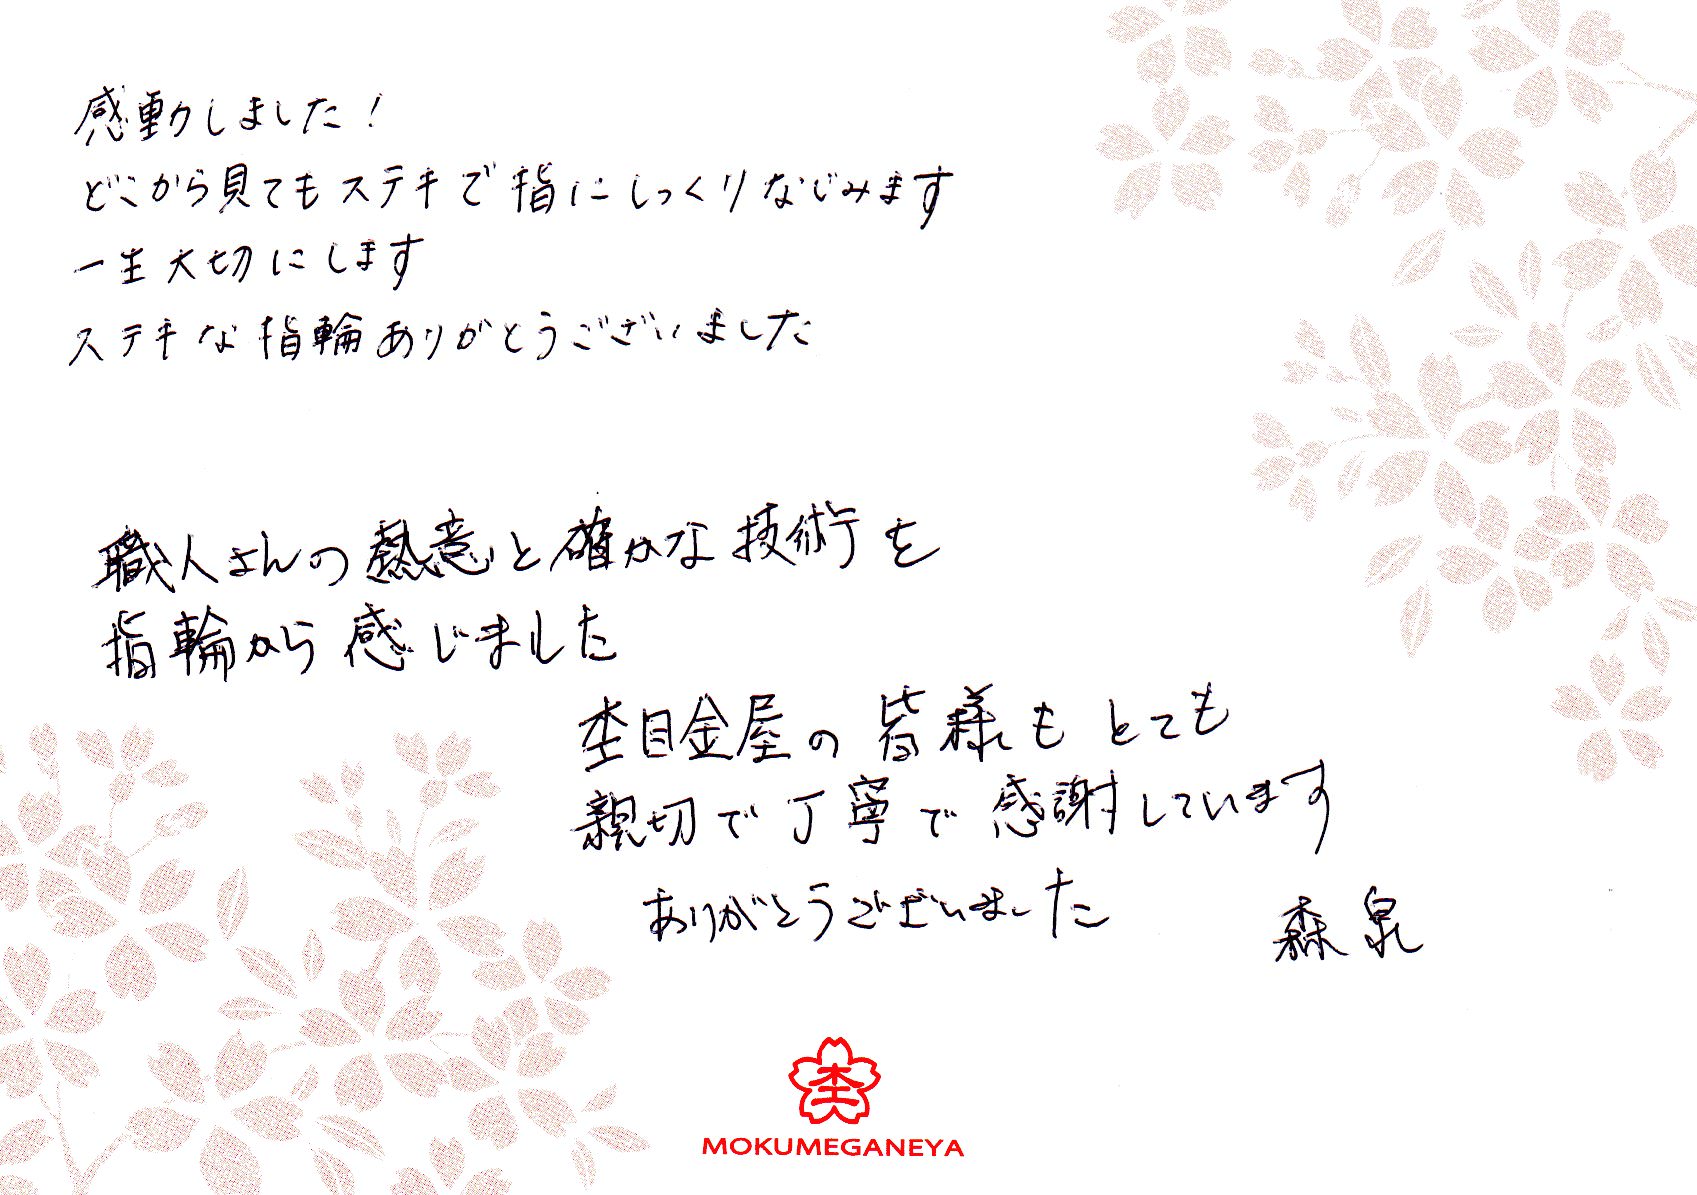 感動しました！
どこから見てもステキで指にしっくりなじみます
一生大切にします
ステキな指輪ありがとうございました
職人さんの熱意と確かな技術を
指輪から感じました
杢目金屋の皆様もとても
親切で丁寧で感謝しています
ありがとうございました
森泉
杢
MOKUMEGANEYA